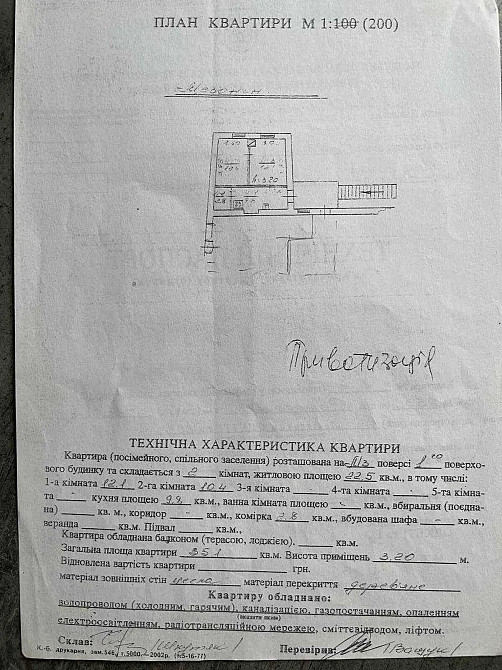 ПЛАН КВАРТИРИ М 1:100 (200)
Мезонін
h=3.20
Приватизація
ТЕХНІЧНА ХАРАКТЕРИСТИКА КВАРТИРИ
Квартира (посімейного, спільного заселення) розташована на поверсі 1го поверхо-
вого будинку та складається з 2 кімнат, житловою площею 22.5 кв.м., в тому числі:
1-а кімната 12.1 2-га кімната 10.4 3-я кімната 4-та кімната 5-та кімна-
та - кухня площею 9.9 кв.м., ванна кімната площею - кв.м., вбиральня (поєдна-
на) кв. м., коридор - кв.м., комірка 2.8 кв.м., вбудована шафа - кв.м.,
веранда кв.м. Підвал кв.м.,
Квартира обладнана балконом (терасою, лоджією), кв.м.
Загальна площа квартири 35.1 кв.м. Висота приміщень 3.20 м.
Відновлена вартість квартири грн.
матеріал зовнішніх стін цегла матеріал перекриття дерев'яне
Квартиру обладнано:
водопроводом (холодним, гарячим), каналізацією, газопостачанням, опаленням
(вказати яким)
електроосвітленням, радіотрансляційною мережею, сміттєвідводом, ліфтом.
Склав: Перевірив:
К.-Б. друкарня, зам.546, т.5000.-2002р.